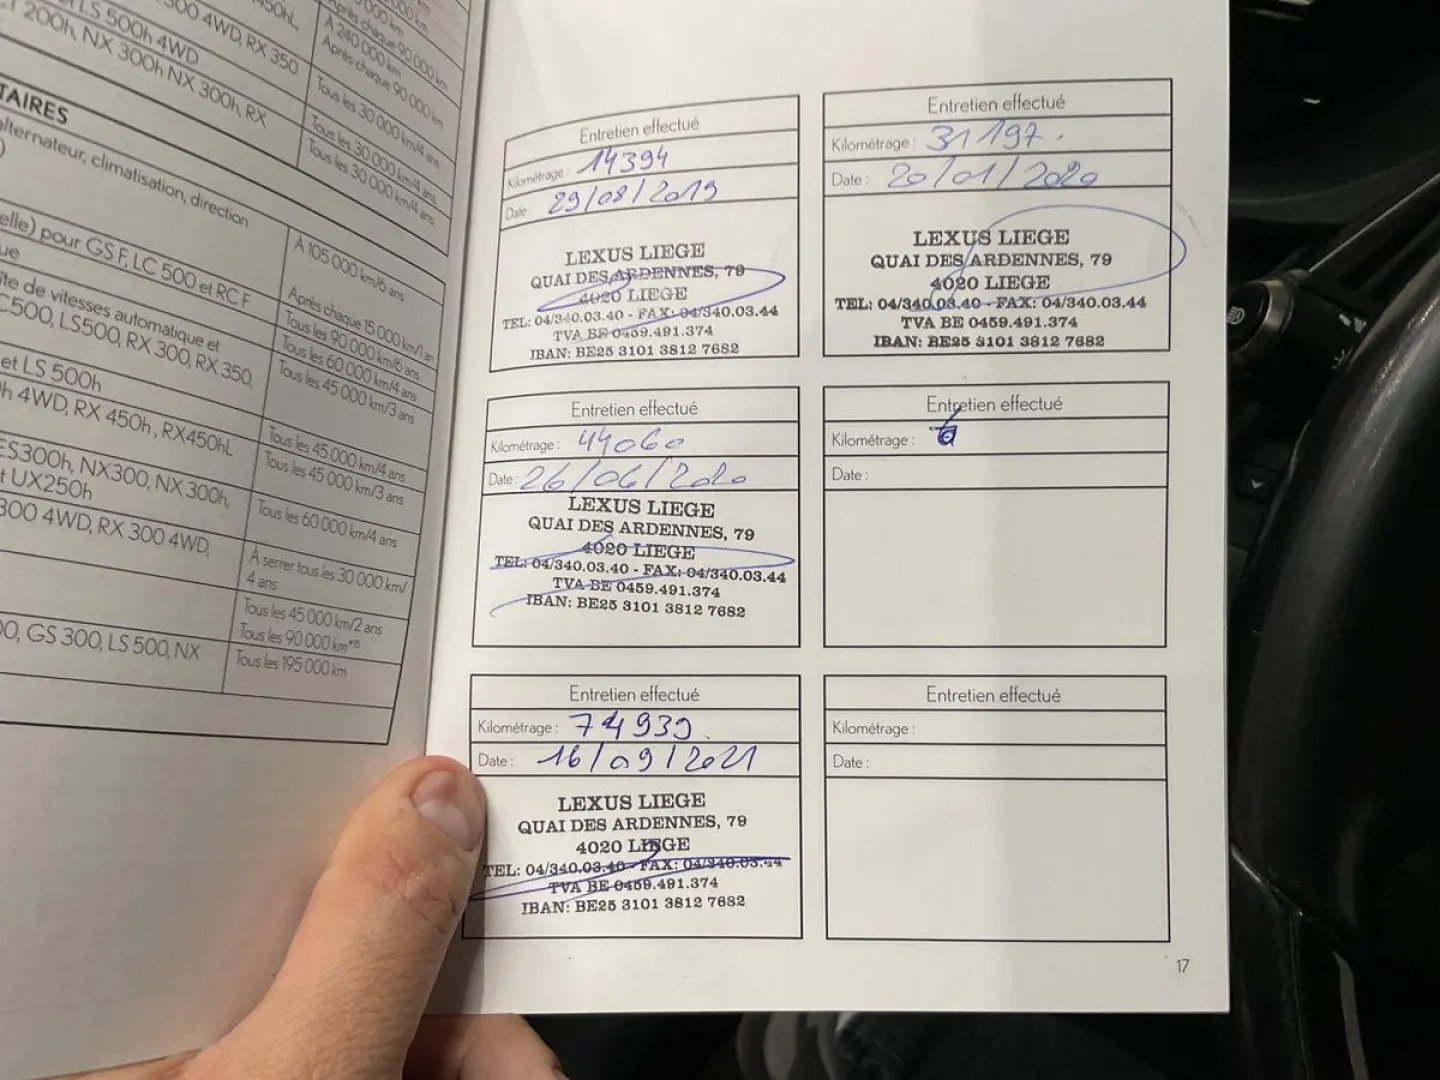 450hL,
LS 500h 4WD
300 4WD, RX 350
200h, NX 300h NX 300h, RX
Après chaque 90 000 km
À 240 000 km
Après chaque 90 000 km
Tous les 30 000 km/4 ans
Tous les 30 000 km/4 ans
Tous les 30 000 km/4 ans
TAIRES
alternateur, climatisation, direction
À 105 000 km/6 ans
elle) pour GS F, LC 500 et RC F
Après chaque 15 000 km/1 an
ue
Tous les 90 000 km/6 ans
îte de vitesses automatique et
Tous les 60 000 km/4 ans
C500, LS500, RX 300, RX 350,
Tous les 45 000 km/3 ans
et LS 500h
Tous les 45 000 km/4 ans
h 4WD, RX 450h, RX450hL
Tous les 45 000 km/3 ans
ES300h, NX300, NX 300h,
t UX250h
Tous les 60 000 km/4 ans
300 4WD, RX 300 4WD,
À serrer tous les 30 000 km/
4 ans
Tous les 45 000 km/2 ans
Tous les 90 000 km*15
00, GS 300, LS 500, NX
Tous les 195 000 km
Entretien effectué
Kilométrage : 14394
Date : 29/08/2019
LEXUS LIEGE
QUAI DES ARDENNES, 79
4020 LIEGE
TEL: 04/340.03.40 - FAX: 04/340.03.44
TVA BE 0459.491.374
IBAN: BE25 3101 3812 7682
Entretien effectué
Kilométrage : 31197.
Date : 20/01/2020
LEXUS LIEGE
QUAI DES ARDENNES, 79
4020 LIEGE
TEL: 04/340.03.40 - FAX: 04/340.03.44
TVA BE 0459.491.374
IBAN: BE25 3101 3812 7682
Entretien effectué
Kilométrage : 44060
Date : 26/06/2020
LEXUS LIEGE
QUAI DES ARDENNES, 79
4020 LIEGE
TEL: 04/340.03.40 - FAX: 04/340.03.44
TVA BE 0459.491.374
IBAN: BE25 3101 3812 7682
Entretien effectué
Kilométrage :
Date :
Entretien effectué
Kilométrage : 74939.
Date : 16/09/2021
LEXUS LIEGE
QUAI DES ARDENNES, 79
4020 LIEGE
TEL: 04/340.03.40 - FAX: 04/340.03.44
TVA BE 0459.491.374
IBAN: BE25 3101 3812 7682
Entretien effectué
Kilométrage :
Date :
17